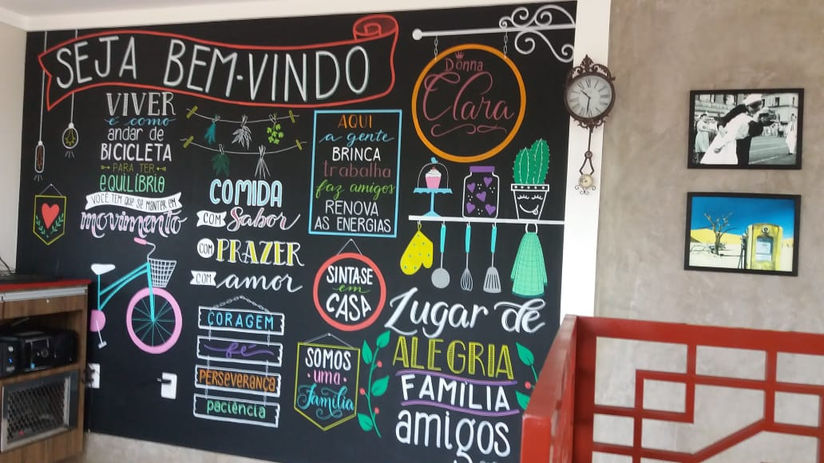 SEJA BEM-VINDO
VIVER
é como
andar de
BICICLETA
PARA TER
EQUILÍBRIO
VOCÊ TEM QUE SE MANTER EM
movimento
COMIDA
COM Sabor
COM PRAZER
COM amor
CORAGEM
fé
PERSEVERANÇA
paciência
AQUI
a gente
BRINCA
trabalha
faz amigos
RENOVA
AS ENERGIAS
SINTA-SE
em
CASA
SOMOS
uma
Família
Donna
Clara
Lugar de
ALEGRIA
FAMÍLIA
amigos